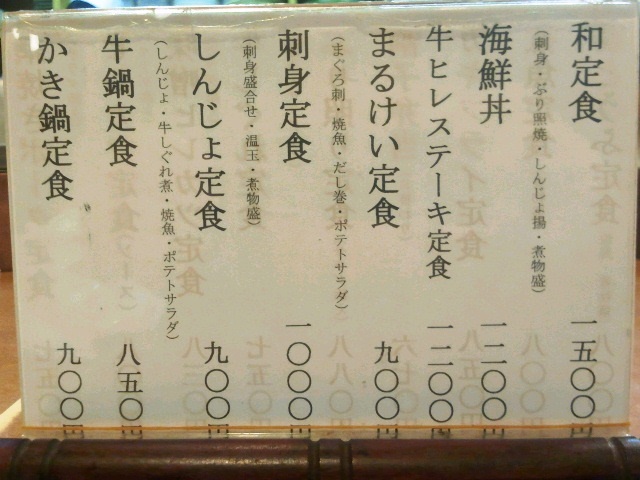 和定食
(刺身・ぶり照焼・しんじょ揚・煮物盛)
一五〇〇円
海鮮丼
一二〇〇円
牛ヒレステーキ定食
一二〇〇円
まるけい定食
(まぐろ刺・焼魚・だし巻・ポテトサラダ)
九〇〇円
刺身定食
(刺身盛合せ・温玉・煮物盛)
一〇〇〇円
しんじょ定食
(しんじょ・牛しぐれ煮・焼魚・ポテトサラダ)
九〇〇円
牛鍋定食
八五〇円
かき鍋定食
九〇〇円